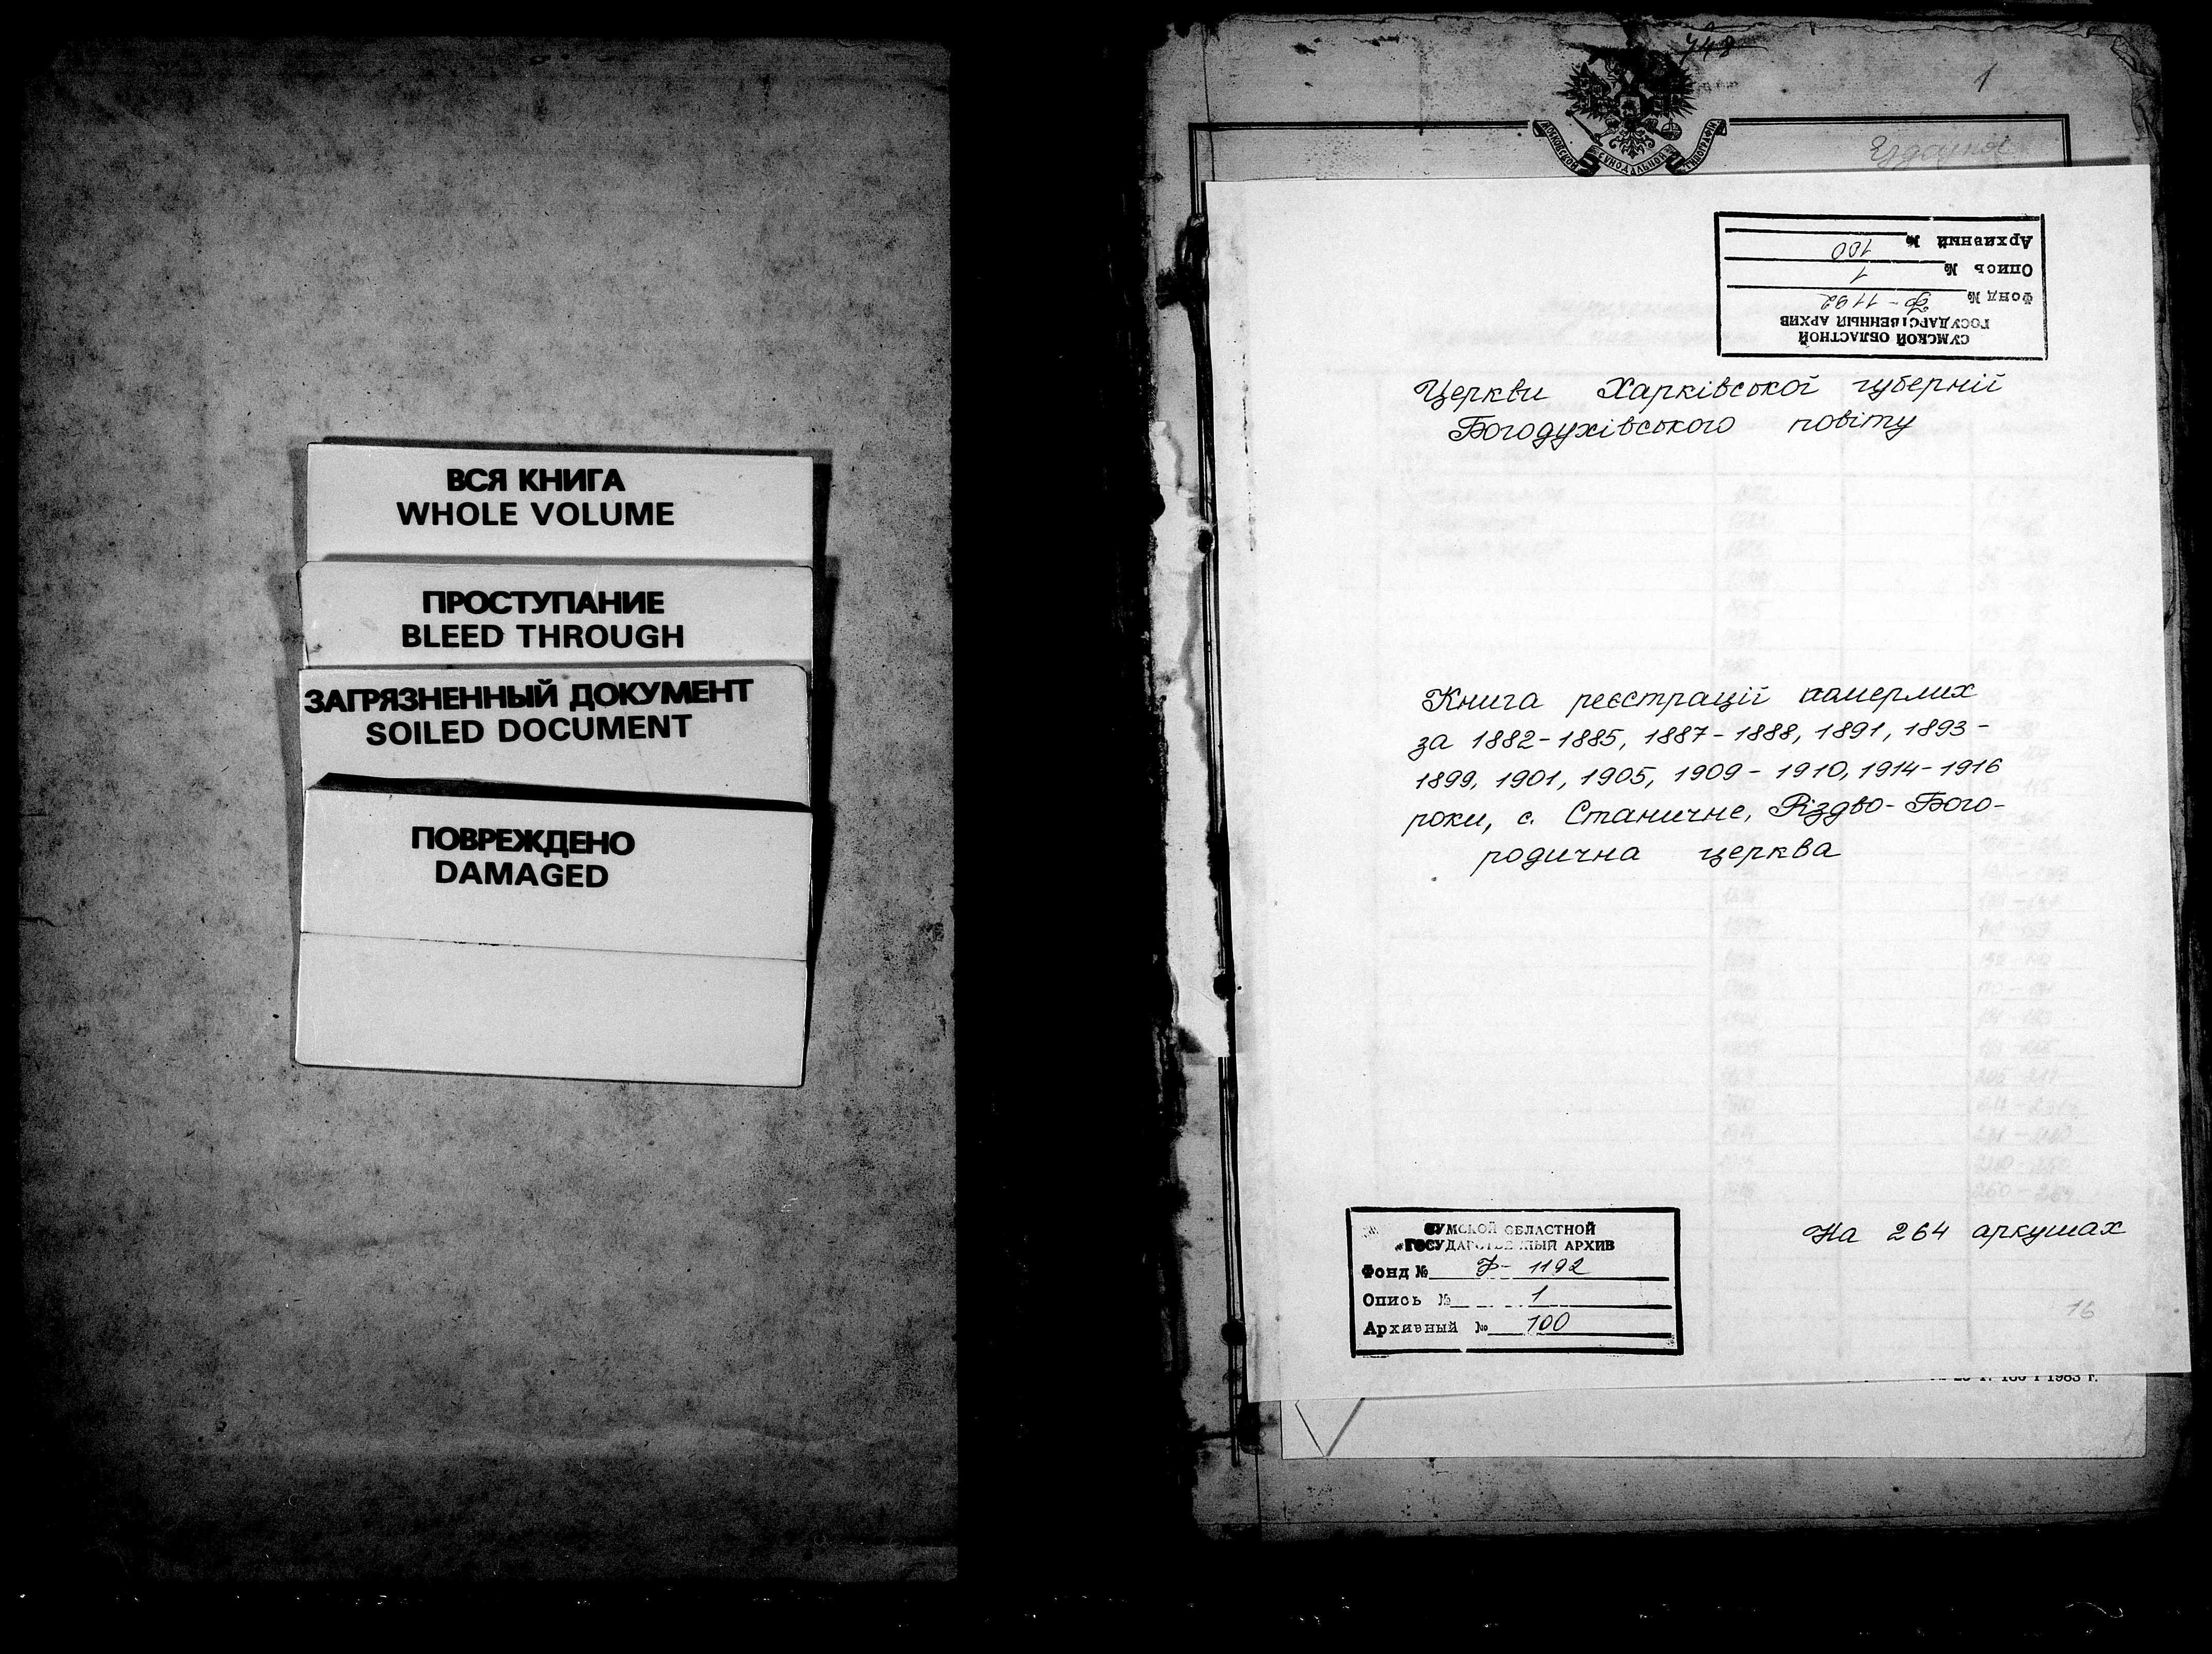 ВСЯ КНИГА
WHOLE VOLUME
ПРОСТУПАНИЕ
BLEED THROUGH
ЗАГРЯЗНЕННЫЙ ДОКУМЕНТ
SOILED DOCUMENT
ПОВРЕЖДЕНО
DAMAGED
748
1
МОСКОВСКОЙ СИНОДАЛЬНОЙ ТИПОГРАФІИ
СУМСКОЙ ОБЛАСТНОЙ
ГОСУДАРСТВЕННЫЙ АРХИВ
Фонд № Ф-1192
Опись № 1
Архивный № 100
Церкви Харківської губернії
Богодухівського повіту
Книга реєстрації померлих
за 1882-1885, 1887-1888, 1891, 1893-
1899, 1901, 1905, 1909-1910, 1914-1916
роки, с. Станичне, Різдво-Бого-
родична церква
На 264 аркушах
СУМСКОЙ ОБЛАСТНОЙ
ГОСУДАРСТВЕННЫЙ АРХИВ
Фонд № Ф-1192
Опись № 1
Архивный № 100
16
1983 г.